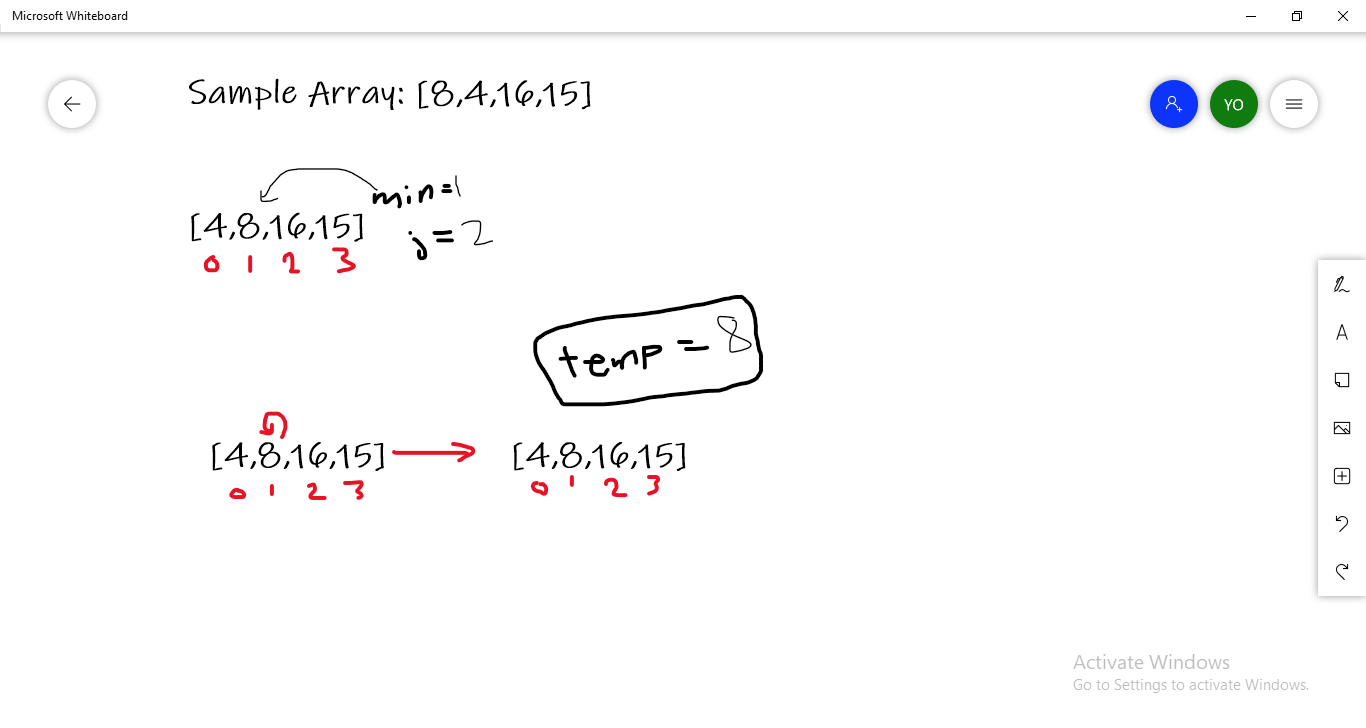 Microsoft Whiteboard
Sample Array: [8,4,16,15]
YO
min=1
[4,8,16,15]
j=2
0 1 2 3
temp = 8
[4,8,16,15] [4,8,16,15]
0 1 2 3 0 1 2 3
A
Activate Windows
Go to Settings to activate Windows.